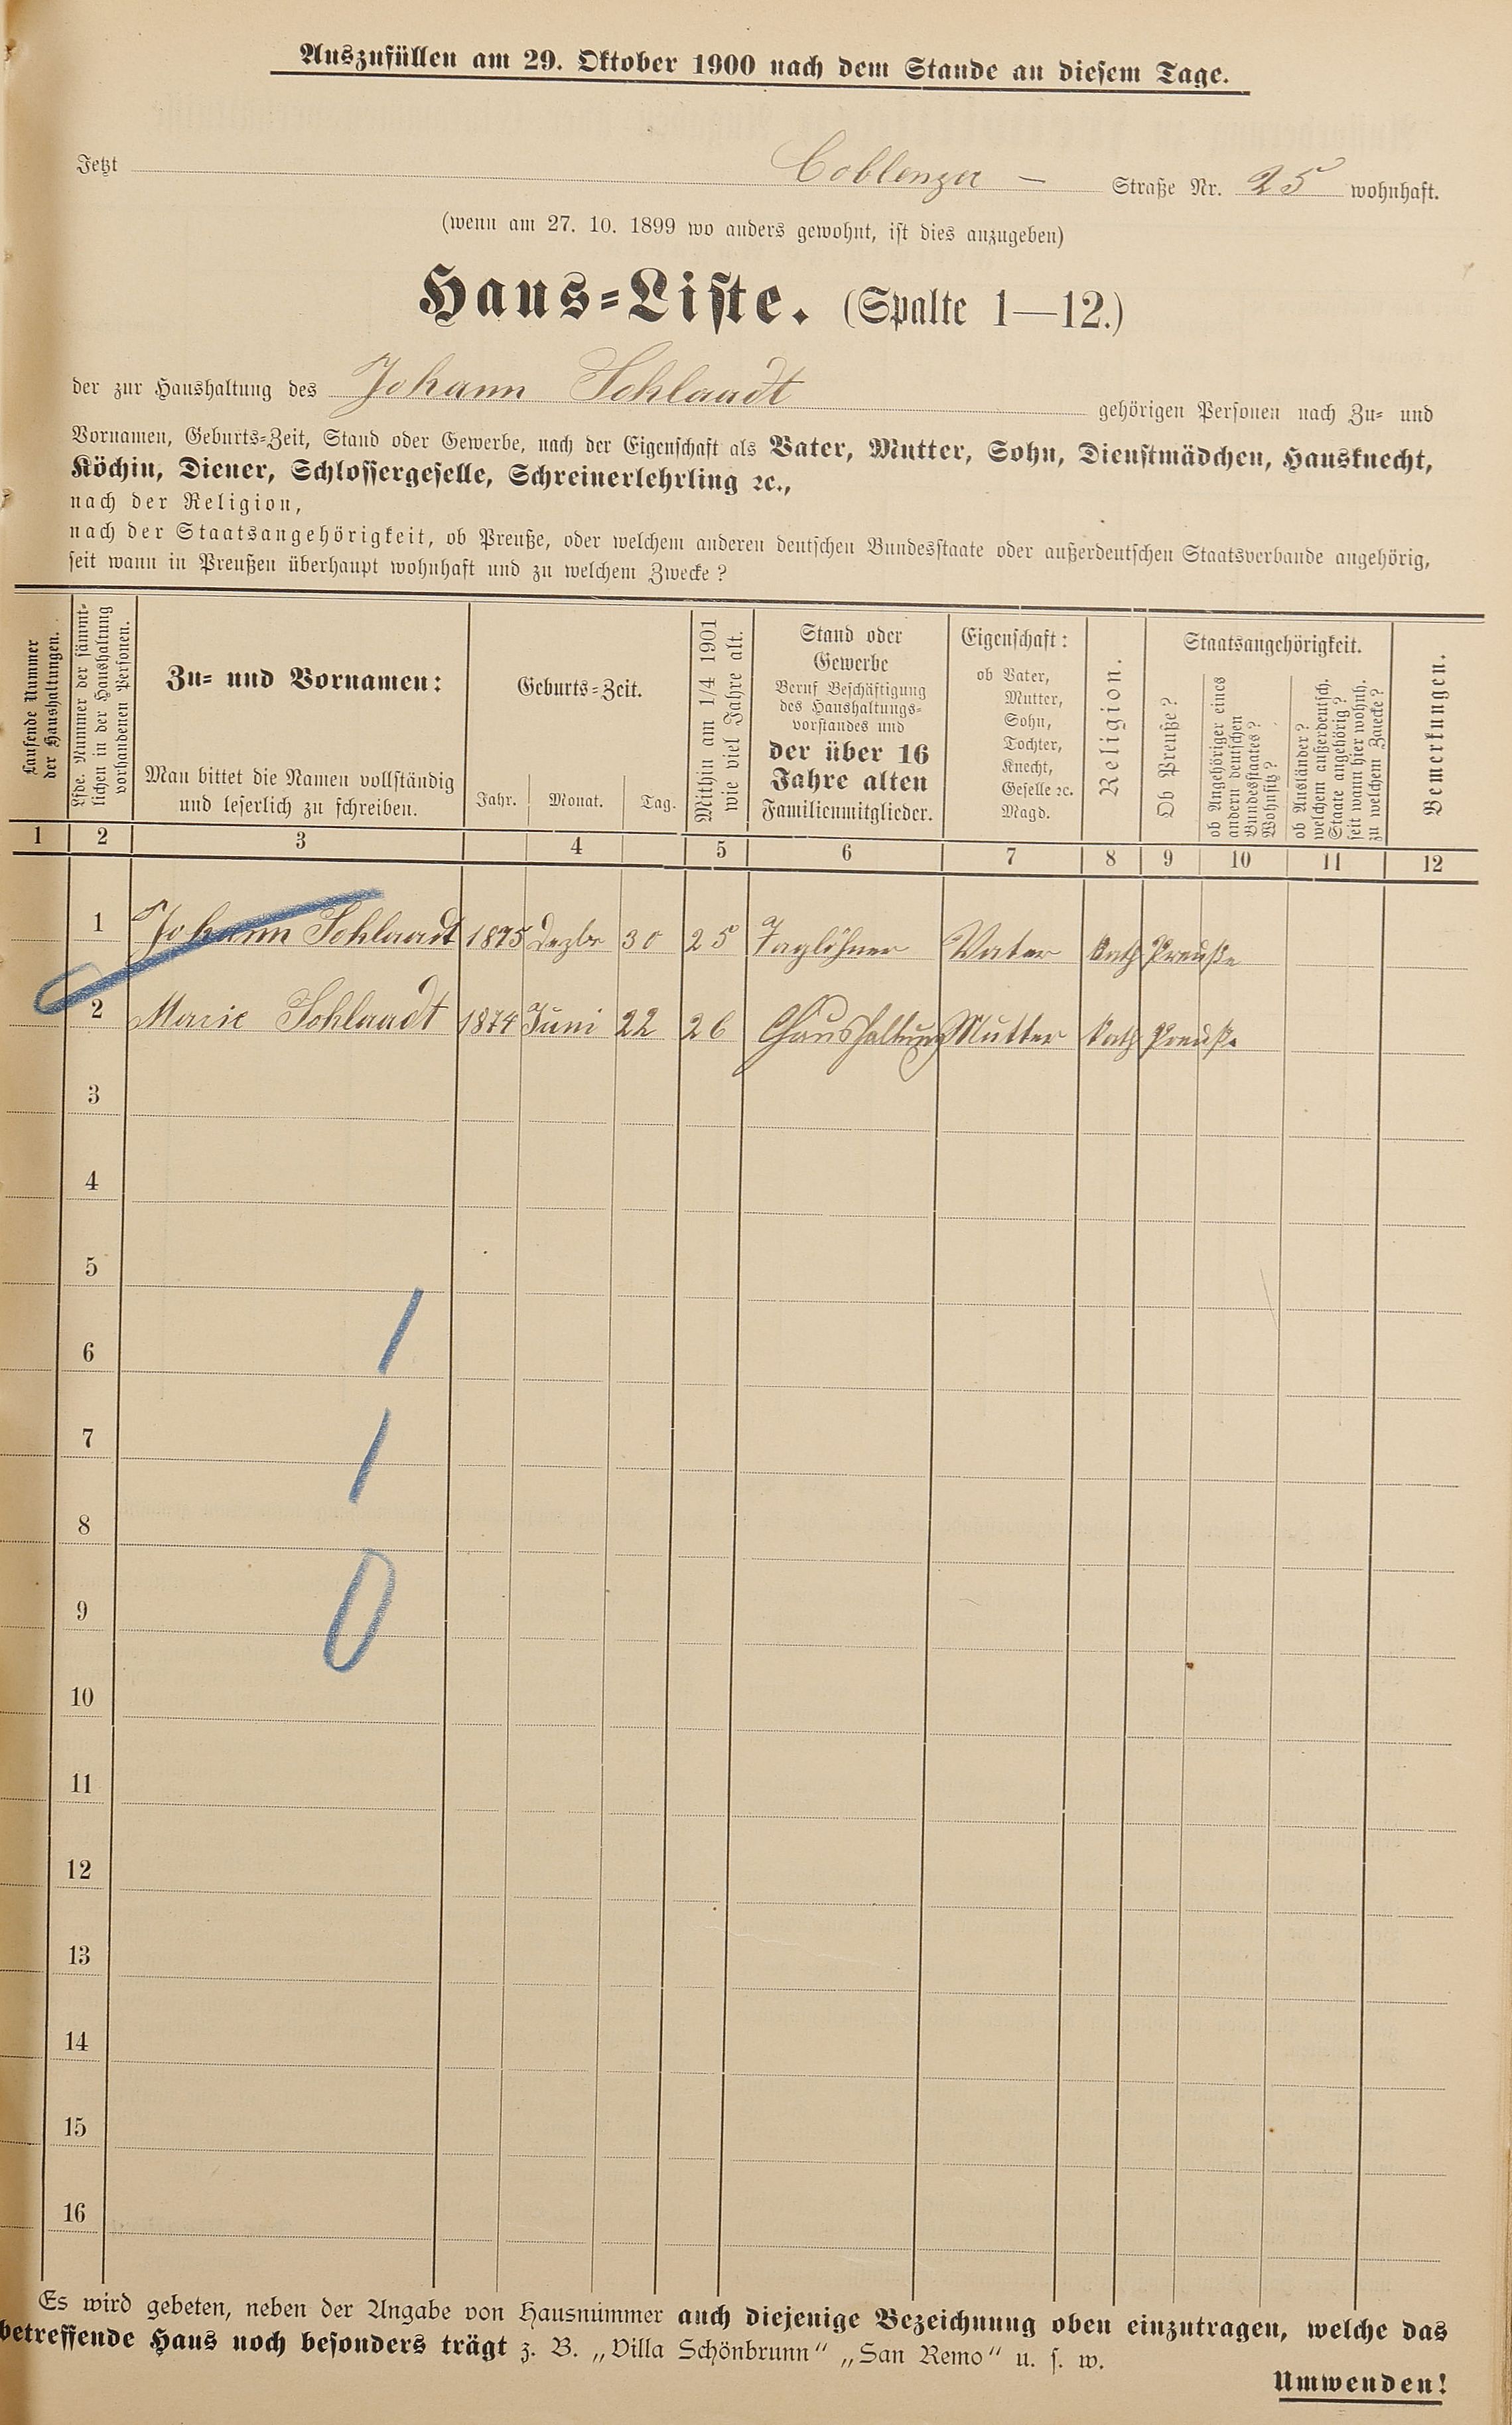 Auszufüllen am 29. Oktober 1900 nach dem Stande an diesem Tage.
Jetzt Coblenzer — Straße Nr. 25 wohnhaft.
(wenn am 27. 10. 1899 wo anders gewohnt, ist dies anzugeben)
Haus=Liste. (Spalte 1—12.)
der zur Haushaltung des Johann Schlaadt gehörigen Personen nach Zu= und
Vornamen, Geburts=Zeit, Stand oder Gewerbe, nach der Eigenschaft als Vater, Mutter, Sohn, Dienstmädchen, Hausknecht,
Köchin, Diener, Schlossergeselle, Schreinerlehrling ꝛc.,
nach der Religion,
nach der Staatsangehörigkeit, ob Preuße, oder welchem anderen deutschen Bundesstaate oder außerdeutschen Staatsverbande angehörig,
seit wann in Preußen überhaupt wohnhaft und zu welchem Zwecke?
Laufende Nummer
der Haushaltungen.
Lfde. Nummer der sämmt=
lichen in der Haushaltung
vorhandenen Personen.
Zu= und Vornamen:
Man bittet die Namen vollständig
und leserlich zu schreiben.
Geburts=Zeit.
Jahr. Monat. Tag.
Mithin am 1/4 1901
wie viel Jahre alt.
Stand oder
Gewerbe
Beruf Beschäftigung
des Haushaltungs=
vorstandes und
der über 16
Jahre alten
Familienmitglieder.
Eigenschaft:
ob Vater,
Mutter,
Sohn,
Tochter,
Knecht,
Geselle ꝛc.
Magd.
Religion.
Staatsangehörigkeit.
Ob Preuße?
ob Angehöriger eines
andern deutschen
Bundesstaates?
Wohnsitz?
ob Ausländer?
welchem außerdeutsch.
Staate angehörig?
seit wann hier wohnh.
zu welchem Zwecke?
Bemerkungen.
1 2 3 4 5 6 7 8 9 10 11 12
1 Johann Schlaadt 1875 Dezbr 30 25 Taglöhner Vater Kath Preuße
2 Marie Schlaadt 1874 Juni 22 26 Haushaltung Mutter Kath Preuße
3
4
5
6
7
8
9
10
11
12
13
14
15
16
Es wird gebeten, neben der Angabe von Hausnummer auch diejenige Bezeichnung oben einzutragen, welche das
betreffende Haus noch besonders trägt z. B. „Villa Schönbrunn“ „San Remo“ u. s. w.
Umwenden!